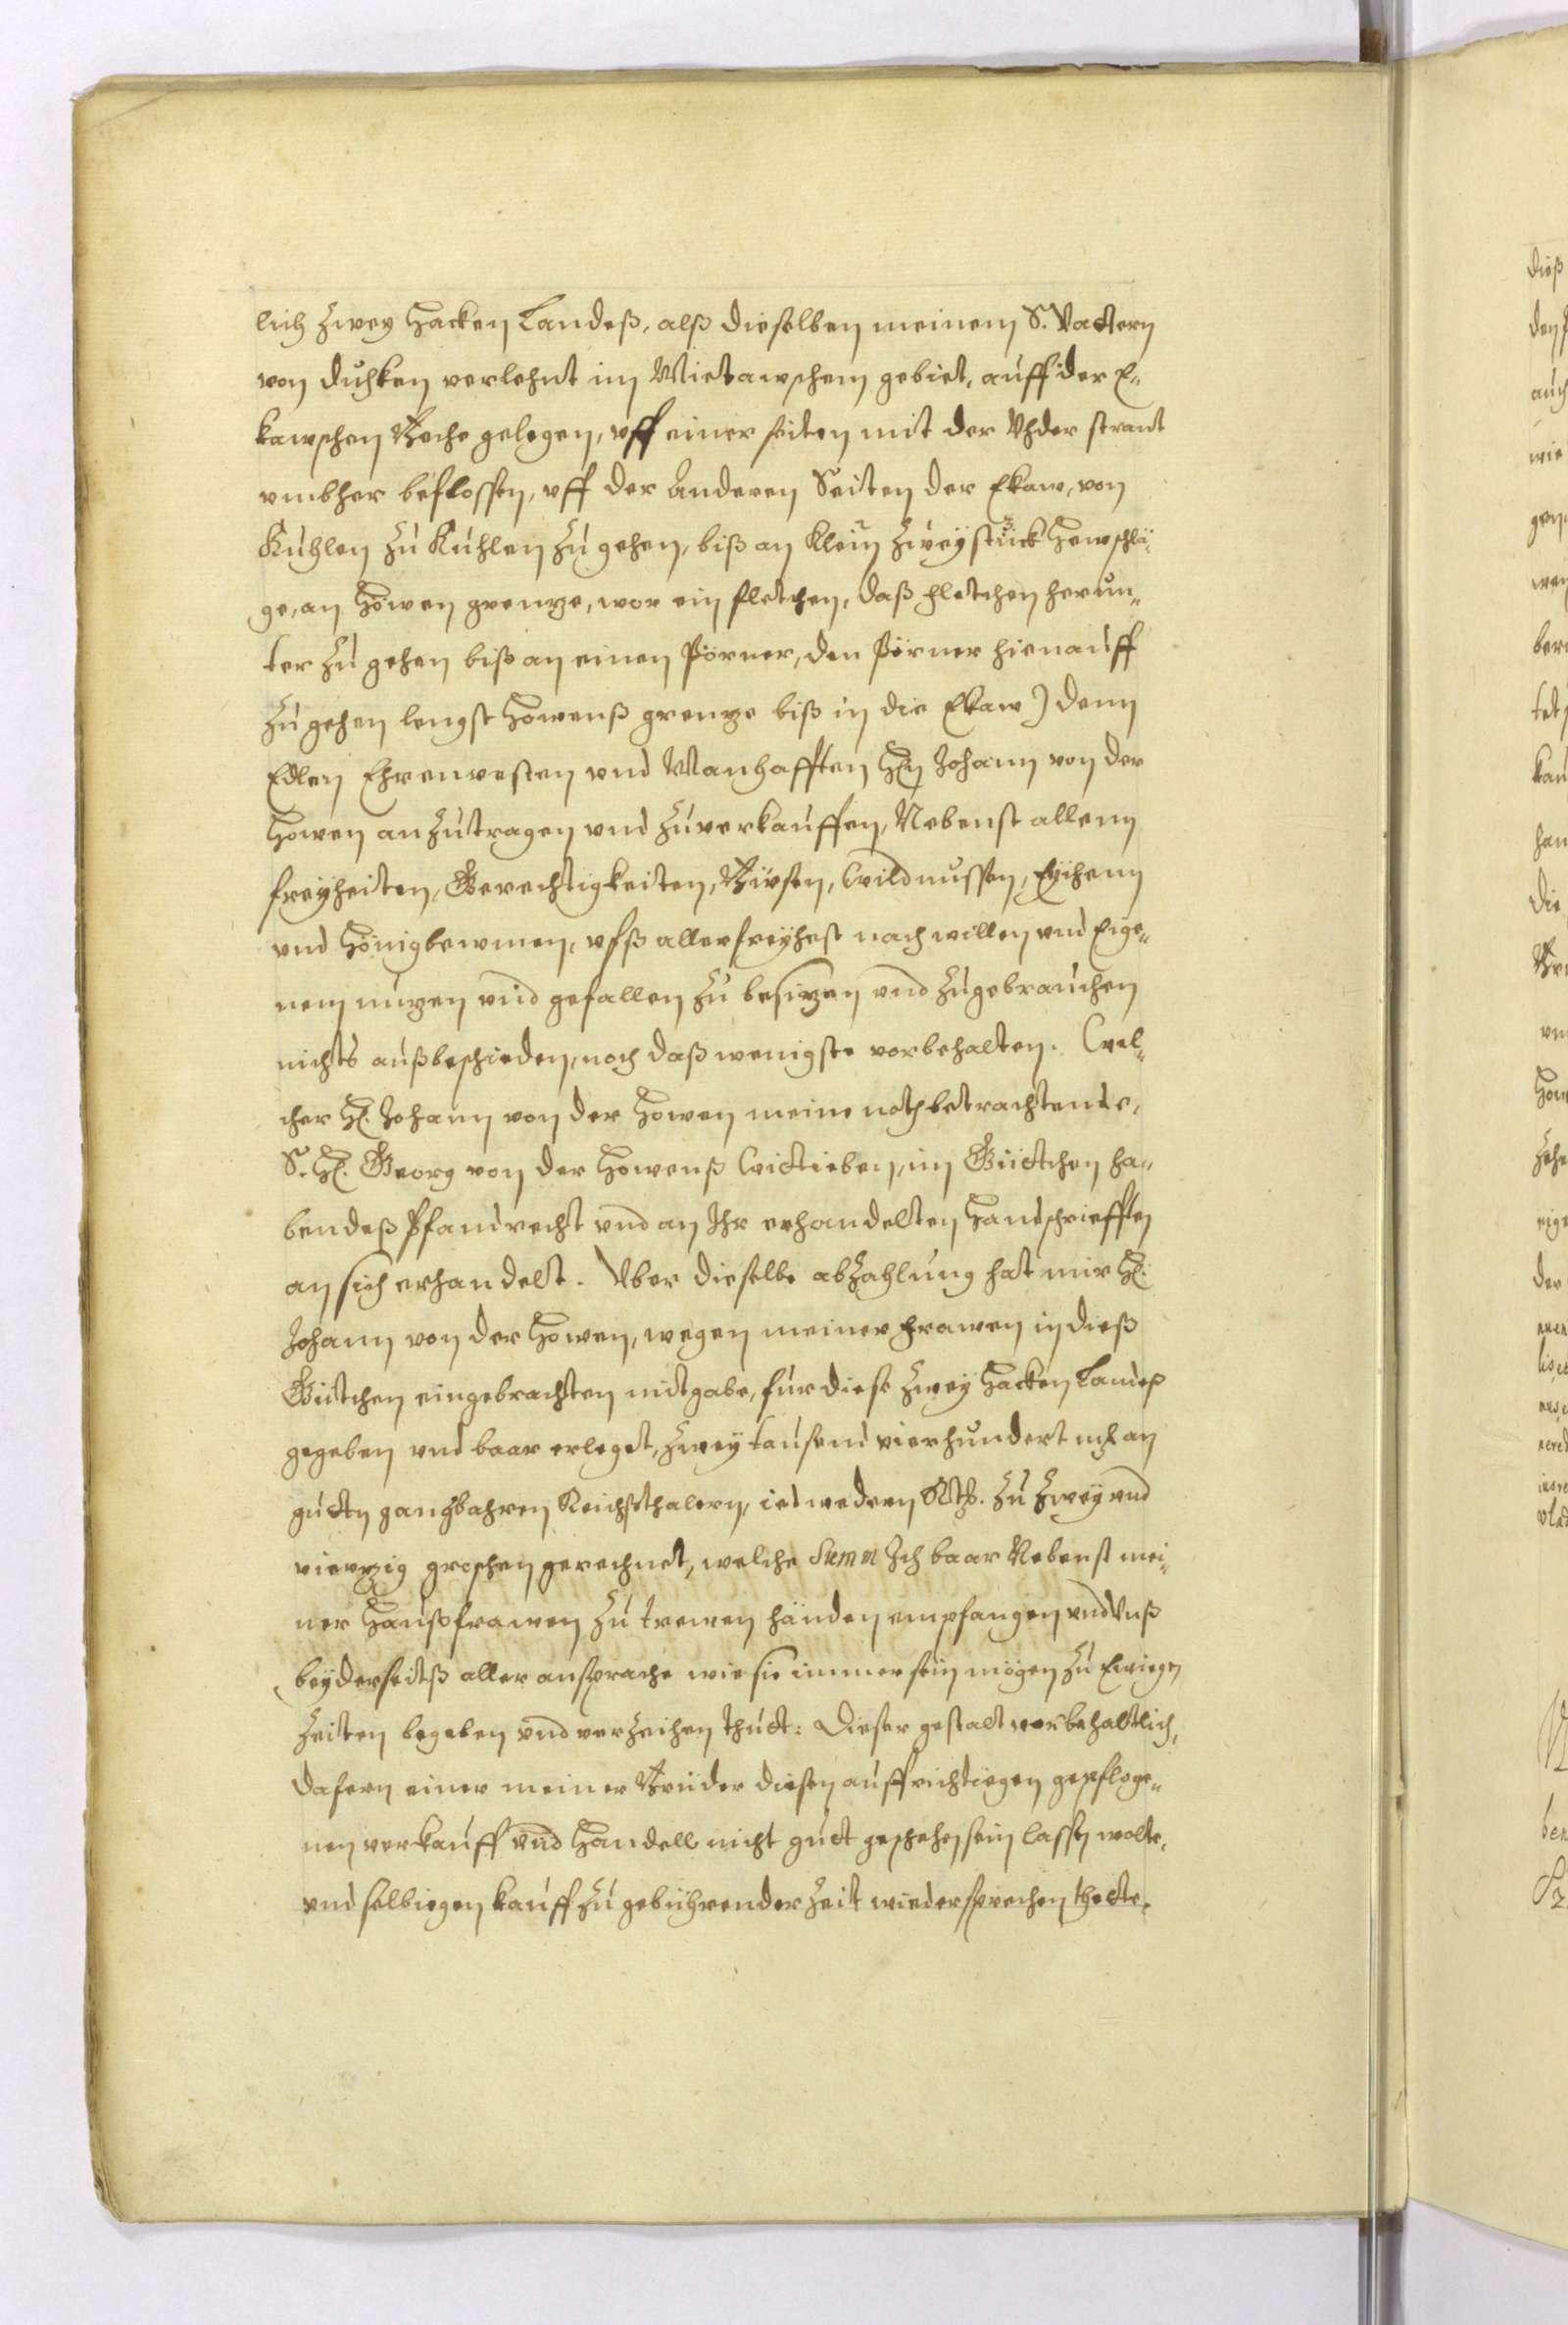 lich Zwey Hacken Landeß, alß dieselben meinem S. Vattern
von duhken verlehnt im Mietawschem gebiet, auff der E-
kawschen Beche gelegen, vff einer seiten mit der Vhder strant
vmbher beflossen, vff der Anderen Seiten der Ekaw, von
Kuhlen zu Kuhlen zu gehen, biß an klein Zwey stück Hewschlä-
ge, an Howen grenze, wor ein fletchen, daß fletchen herun-
ter zu gehen biß an einen Pörner, den Pörner hienauff
zu gehen lengst Howenß grenze biß in die Ekaw) dem
Edlen Ehrenvesten vnd Manhafften H(n) Johann von der
Howen anzutragen vnd zuverkauffen, Nebenst allem
freyheiten, Gerechtigkeiten, Birsen, Wildnussen, Eychenn
vnd Hönigbewmen, vfß allerfreyhest nach willen vnd Eige-
nem nuzen vnd gefallen zu besizen vnd zugebrauchen
nichts außbeschieden, noch daß wenigste vorbehalten. Wel-
cher H. Johann von der Howen meine noth betrachtende,
S. H. Georg von der Howenß Wittieben, im Güttchen ha-
bendeß Pfandrecht vnd an Ihr erhandelten Handschriefften
an sich erhandelt. Vber dieselbe abzahlung hat mir H.
Johann von der Howen, wegen meiner Frawen in dieß
Gütchen eingebrachten mitgabe, für diese Zwey Hacken Landeß
gegeben vnd baar erleget, Zwey tausend vierhundert mk an
gutten gangbahren Reichsthalern, ietwedern Rth. zu Zwey vnd
vierzig groschen gerechnet, welche Summ Ich baar Nebenst mei-
ner Haußfrawen zu trewen händen empfangen vnd Vnß
beyderseitß aller ansprache wie sie immer sein mögen zu Ewigen
Zeiten begeben vnd verzeihen thutt: Dieser gestalt vorbehaltlich,
dafern einer meiner Brüder diesen auffrichtiegen gepfloge-
nen verkauff vnd Handell nicht gutt geschehen sein lassen wolte,
vnd selbiegen kauff zu gebührender Zeit wiedersprechen thette,